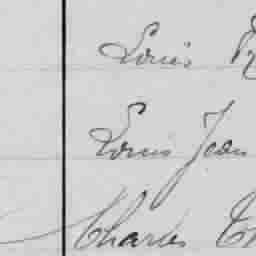 Louis
Louis Jean
Charles